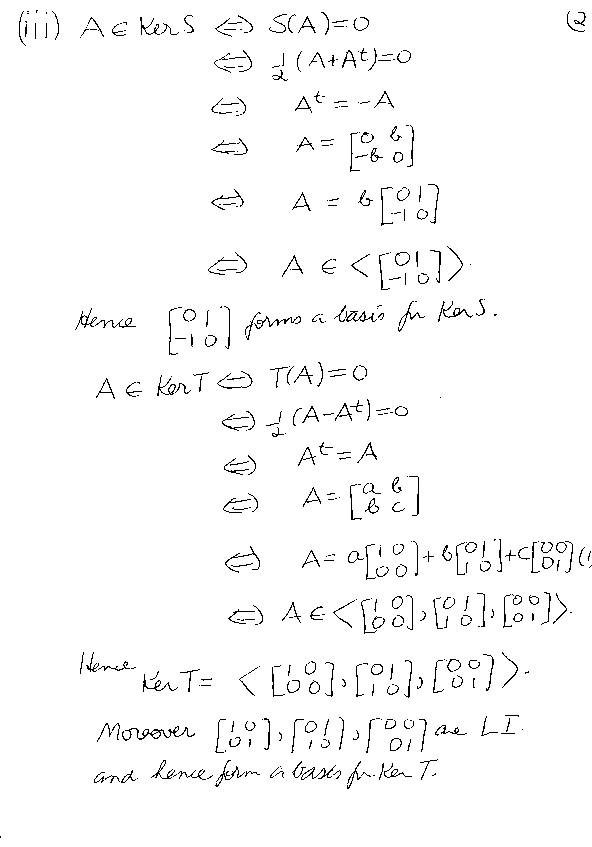 (iii) A ∈ Ker S ⇔ S(A)=0 (2
⇔ 1/2 (A+Aᵗ)=0
⇔ Aᵗ = -A
⇔ A = [0 b; -b 0]
⇔ A = b[0 1; -1 0]
⇔ A ∈ <[0 1; -1 0]>.
Hence [0 1; -1 0] forms a basis for Ker S.
A ∈ Ker T ⇔ T(A)=0
⇔ 1/2 (A-Aᵗ)=0
⇔ Aᵗ = A
⇔ A = [a b; b c]
⇔ A = a[1 0; 0 0] + b[0 1; 1 0] + c[0 0; 0 1] (1
⇔ A ∈ <[1 0; 0 0], [0 1; 1 0], [0 0; 0 1]>.
Hence Ker T = <[1 0; 0 0], [0 1; 1 0], [0 0; 0 1]>.
Moreover [1 0; 0 1], [0 1; 1 0], [0 0; 0 1] are LI
and hence form a basis for Ker T.